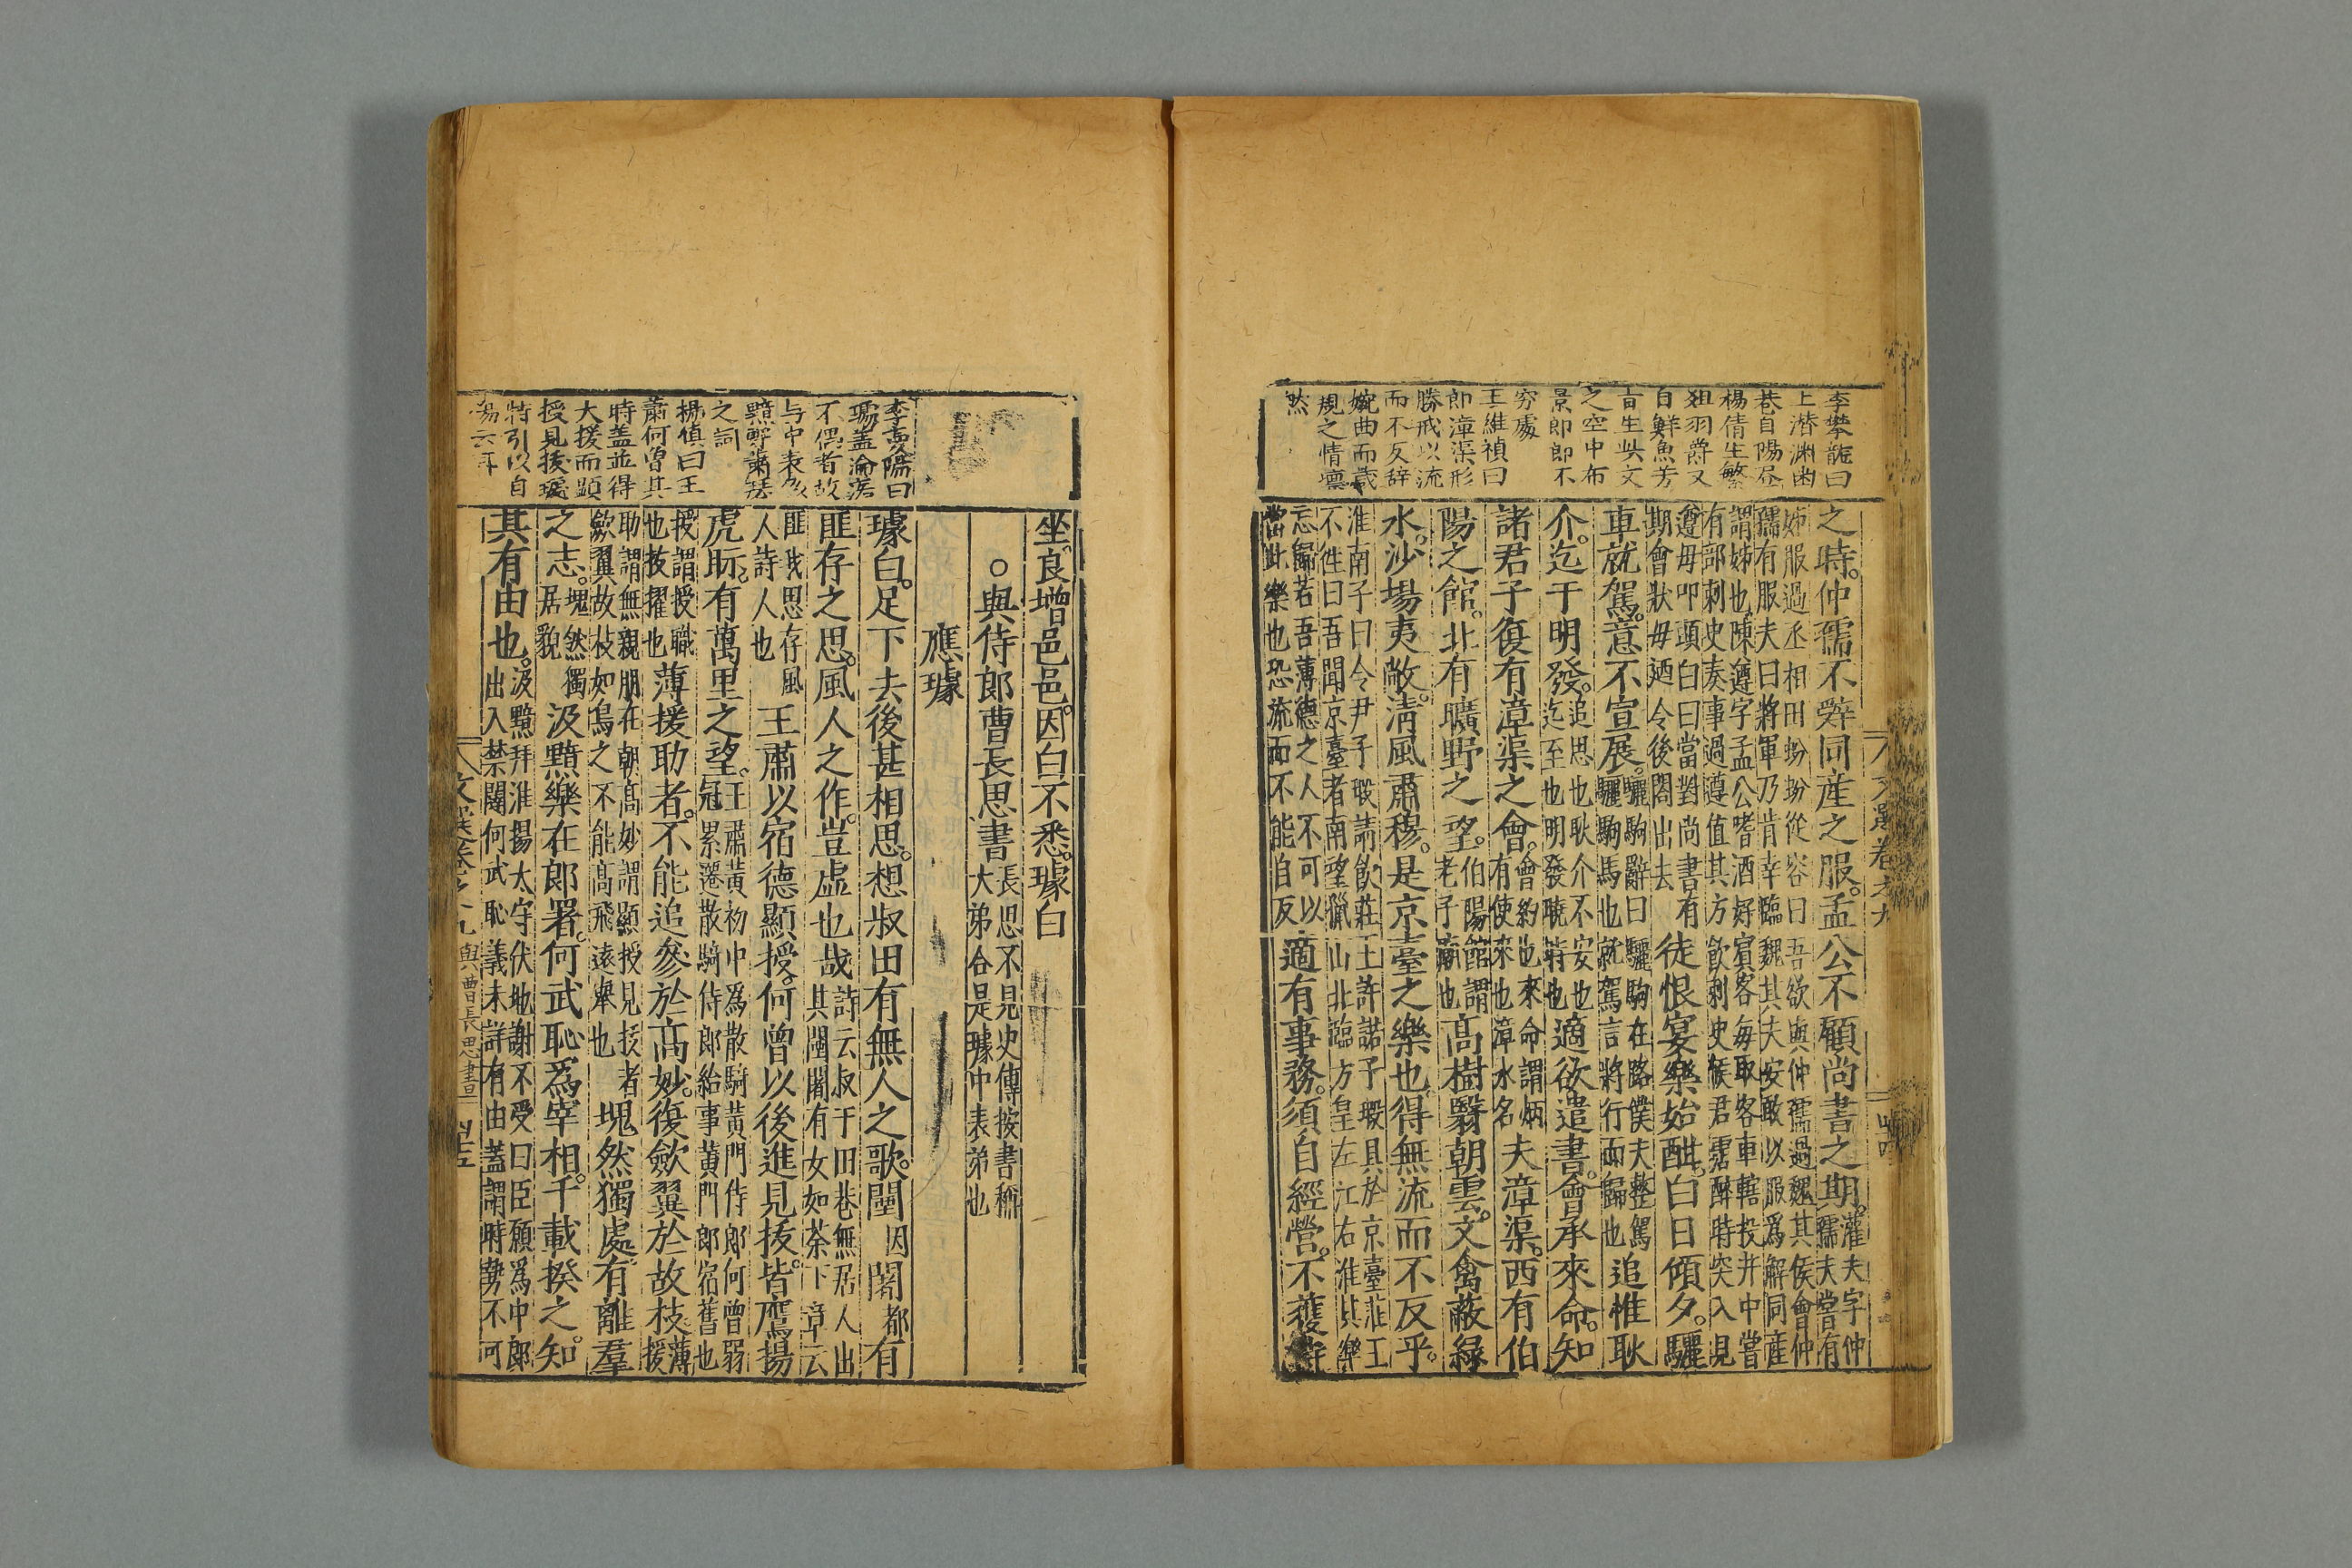 李攀龍曰
上潜渊幽
巷自陽昼
楊倩生繁
俎羽爵又
自鮮魚芳
旨生吳文
之空中布
景即即不
穷處
王維禎曰
即漳渠形
勝戒以流
而不反辞
婉曲而箴
規之情凛
然
之時。仲孺不辭同産之服。孟公不顧尚書之期。灌夫字仲
孺夫嘗有
姊服過丞相田蚡蚡從容曰吾欲與仲孺過魏其侯會仲
孺有服夫曰將軍乃肯幸臨魏其夫安敢以服爲解同産
謂姊也陳遵字孟公嗜酒好賓客每取客車轄投井中嘗
有部刺史奏事過遵值其方飲刺史候君霑醉時突入見
遵母叩頭白曰當對尚書有
期會狀母廼令後閤出去
徒恨宴樂始酣。白日傾夕。驪
車就駕。意不宣展。驪駒辭曰驪駒在路僕夫整駕
驪駒馬也就駕言將行而歸也
追惟耿
介。迄于明發。追思也耿介不安也
迄至也明發曉時也
適欲遣書。會承來命。知
諸君子復有漳渠之會。會約也來命謂炳
有使來也漳水名
夫漳渠。西有伯
陽之館。北有曠野之望。伯陽館謂
老子廟也
高樹翳朝雲。文禽蔽綠
水。沙場夷敞。淸風肅穆。是京臺之樂也。得無流而不反乎。
淮南子曰令尹子瑕請飮莊王許諾子瑕具於京臺莊王
不徃曰吾聞京臺者南望獵山北臨方皇左江右淮其樂
忘歸若吾薄德之人不可以
當此樂也恐流而不能自反
適有事務。須自經營。不獲侍
文選卷之十九
四十四
坐。良增邑邑。因白不悉。璩白
○與侍郎曹長思書長思不見史傳按書稱
大弟合是璩中表弟也
應璩
璩白。足下去後甚相思。想叔田有無人之歌。闉因闍都有
匪存之思。風人之作。豈虛也哉詩云叔于田巷無居人出
其闉闍有女如荼下章云
匪我思存風
人詩人也
王肅以宿德顯授。何曾以後進見拔。皆鷹揚
虎眎。有萬里之望。王肅黃初中爲散騎黃門侍郎何曾弱
冠累遷散騎侍郎給事黃門郎宿舊也
授謂授職
也拔擢也
薄援助者。不能追參於高妙。復歛翼於故枝薄
援
助謂無親朋在朝髙妙謂顯授見拔者
歛翼故枝如鳥之不能髙飛遠舉也
塊然獨處。有離羣
之志。塊然獨
居貌
汲黯樂在郎署。何武恥爲宰相。千載揆之。知
其有由也。汲黯拜淮揚太守伏地謝不受曰臣願爲中郎
出入禁闥何武恥義未詳有由蓋謂時勢不可
李夢陽曰
璩盖淪落
不偶者故
与中表多
黯鮮肅琹
之詞
楊慎曰王
蕭何曽其
時盖並得
大援而顕
授見拔璩
特引以自
文選卷之十九
與曹長思書
四十五